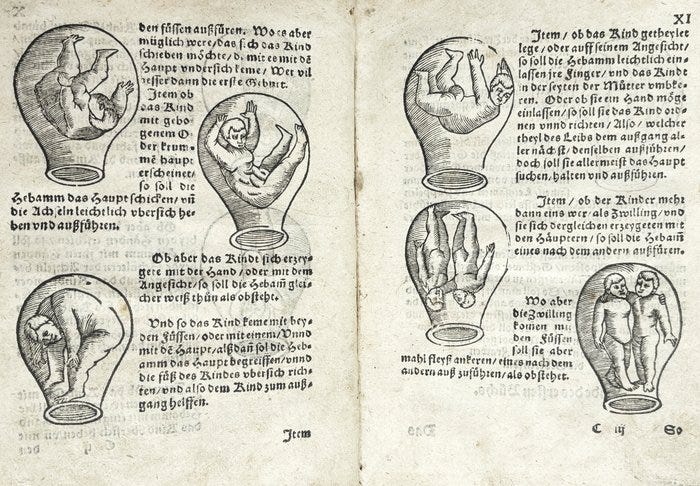 X
den füssen außfüren. Wo es aber
müglich were / das sich das Kind
schieben möchte / dz mit es mit dē
Haupt vndersich keme / Wer vil
besser dann die erste Geburt.
Item ob
das Kind
mit gebo-
genem O-
der krum-
me haupt
erscheinet /
so soll die
Hebamm das Haupt schicken / vn̄
die Achseln leichtlich vbersich he-
ben vnd außführen.
Ob aber das Kindt sich erzey-
gete mit der Hand / oder mit dem
Angesicht / so soll die Hebam̄ glei-
cher weiß thun als obsteht.
Vnd so das Kind keme mit bey-
den Füssen / oder mit einem / Vnnd
mit dē Haupt / alßdan̄ sol die Heb-
amm das Haupt begreiffen / vnnd
die füß des Kindes vbersich rich-
ten / vnd also dem Kind zum auß-
gang helffen.
Item
XI
Item / ob das Kind getheylet
lege / oder auff seinem Angesicht /
so soll die Hebamm leichtlich ein-
lassen jre Finger / vnd das Kindt
in der seyten der Mütter vmbke-
ren. Oder ob sie ein Hand möge
einlassen / so soll sie das Kind ord-
nen vnnd richten / Also / welcher
theyl des Leibs dem außgang al-
ler nächst / denselben außführen /
doch soll sie allermeist das Haupt
suchen, halten vnd außführen.
Item / ob der Kinder mehr
dann eins wer / als Zwilling / vnd
sie sich dergleichen erzeygeten mit
den Häuptern / so soll die Hebam̄
eines nach dem andern außfüren.
Wo aber
die Zwilling
komen mit
den Füssen
soll sie aber
mahl fleyß ankeren / eines nach dem
andern auß zuführen / als obstehet.
C iij
So